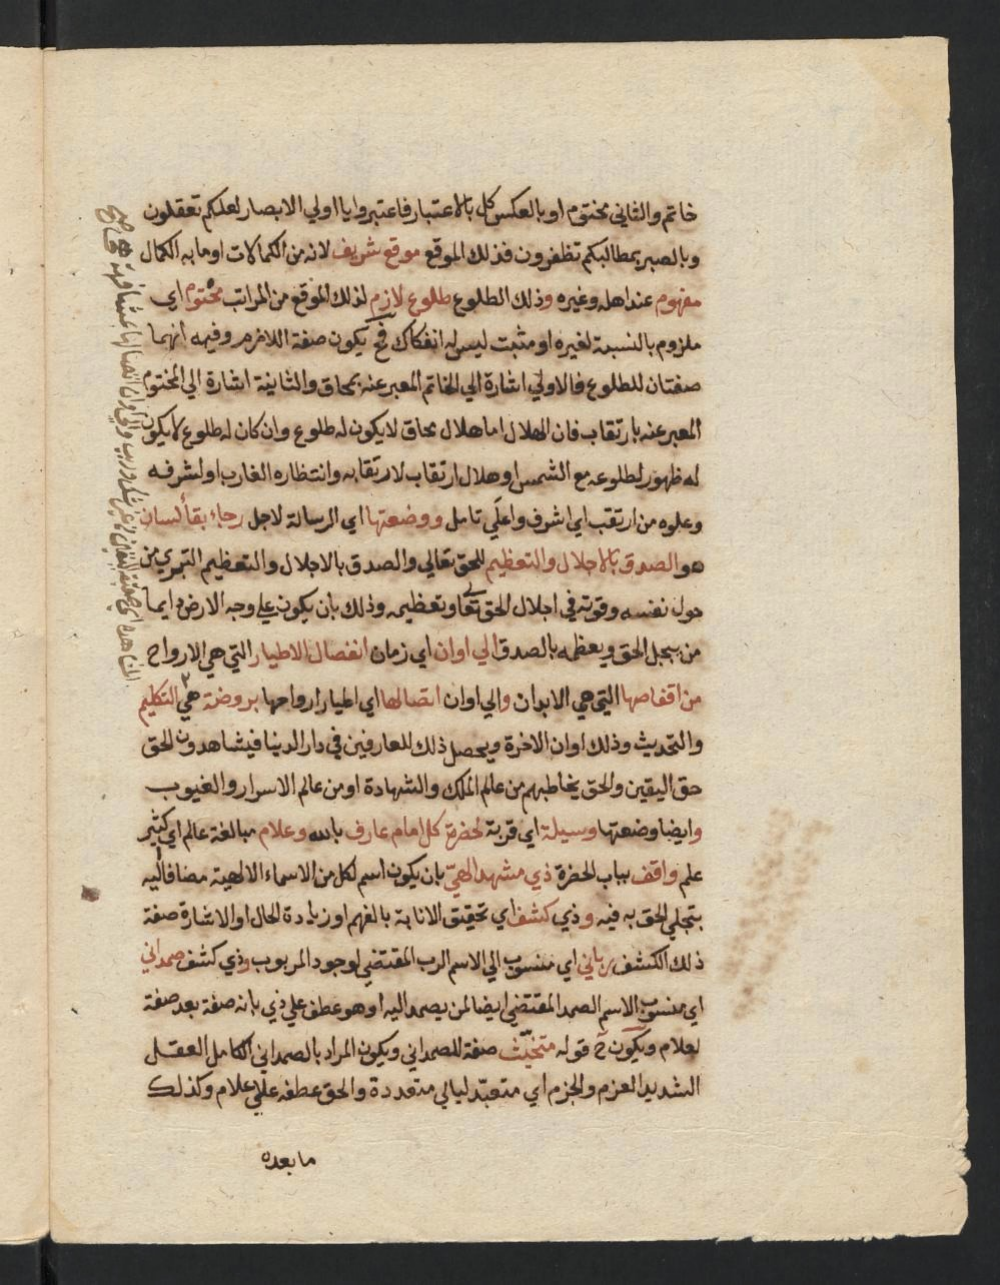 خاتم والثاني مختوم او بالعكس كل بالاعتبار فاعتبروا يا اولي الابصار لعلكم تعقلون
وبالصبر بمطالبكم تظفرون فذلك الموقع موقع شريف لانه من الكمالات او ما به الكمال
مفهوم عند اهله وغيره وذلك الطلوع طلوع لازم لذلك الموقع من المراتب محتوم اي
ملزوم بالنسبة لغيره او مثبت ليس له انفكاك فح يكون صفة اللازم وفيه انهما
صفتان للطلوع فالاولي اشارة الي الخاتم المعبر عنه بمحاق والثانية اشارة الي المختوم
المعبر عنه بارتقاب فان الهلال اما هلال محاق لا يكون له طلوع وان كان له طلوع لا يكون
له ظهور لطلوعه مع الشمس او هلال ارتقاب لارتقابه وانتظاره الغارب او لشرفه
وعلوه من ارتقب اي اشرف واعلي تامل ووضعتها اي الرسالة لاجل رجاء بقا لسان
هو الصدق بالاجلال والتعظيم للحق تعالي والصدق بالاجلال والتعظيم التبري من
حول نفسه وقوته في اجلال الحق تعا وتعظيمه وذلك بان يكون علي وجه الارض ايما
من يبجل الحق ويعظمه بالصدق الي اوان اي زمان انفصال الاطيار التي هي الارواح
من اقفاصها التي هي الابدان والي اوان اتصالها اي اطيار ارواحها بروضة هي التكليم
والتحديث وذلك اوان الاخرة ويحصل ذلك للعارفين في دار الدنيا فيشاهدون الحق
حق اليقين والحق يخاطبهم من عالم الملك والشهادة او من عالم الاسرار والغيوب
وايضا وضعتها وسيلة اي قربة لحضرة كل امام عارف بالله وعلام مبالغة عالم اي كثير
علم واقف بباب الحضرة ذي مشهد الهي بان يكون اسم لكل من الاسماء الالهية مضافا اليه
بتجلي الحق به فيه وذي كشف اي تحقيق الانابة بالفهم او زيادة الحال او الاشارة صفة
ذلك الكشف رباني اي منسوب الي الاسم الرب المقتضي لوجود المربوب وذي كشف صمداني
اي منسوب الاسم الصمد المقتضي ايضا لمن يصمد اليه او هو عطف علي ذي بانه صفة بعد صفة
لعلام ويكون ح قوله متحنث صفة للصمداني ويكون المراد بالصمداني الكامل العقل
الشديد العزم والجزم اي متعبد ليالي متعددة والحق عطفه علي علام وكذلك
ما بعده